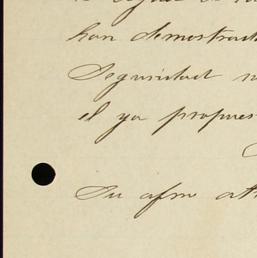 han demostrad
Seguridad
el ya propues
Su afmo att